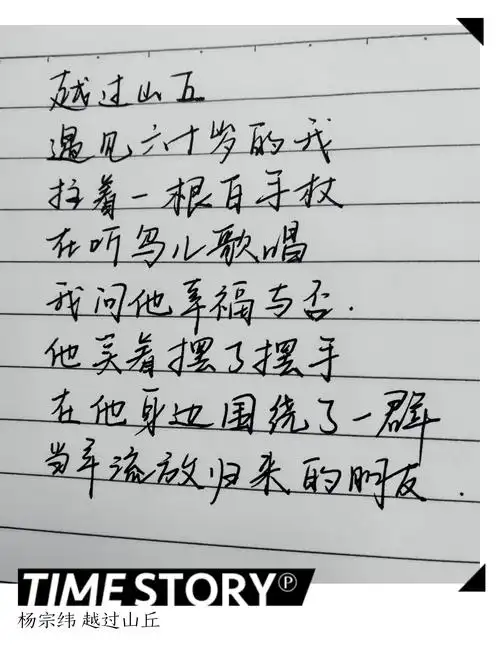 越过山丘
遇见六十岁的我
拄着一根白手杖
在听鸟儿歌唱
我问他幸福与否.
他笑着摆了摆手
在他身边围绕了一群
当年流放归来的朋友.
TIME STORY ℗
杨宗纬 越过山丘